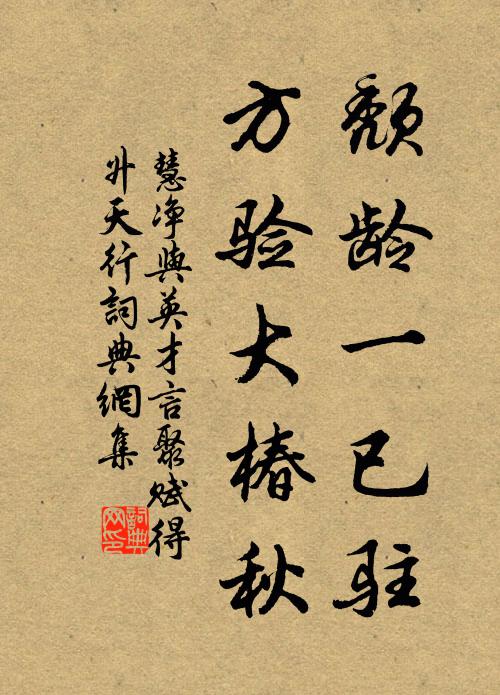 颓龄一已驻
方验大椿秋
慧净與英才言聚赋得
升天行詞典網集
詞典
网印